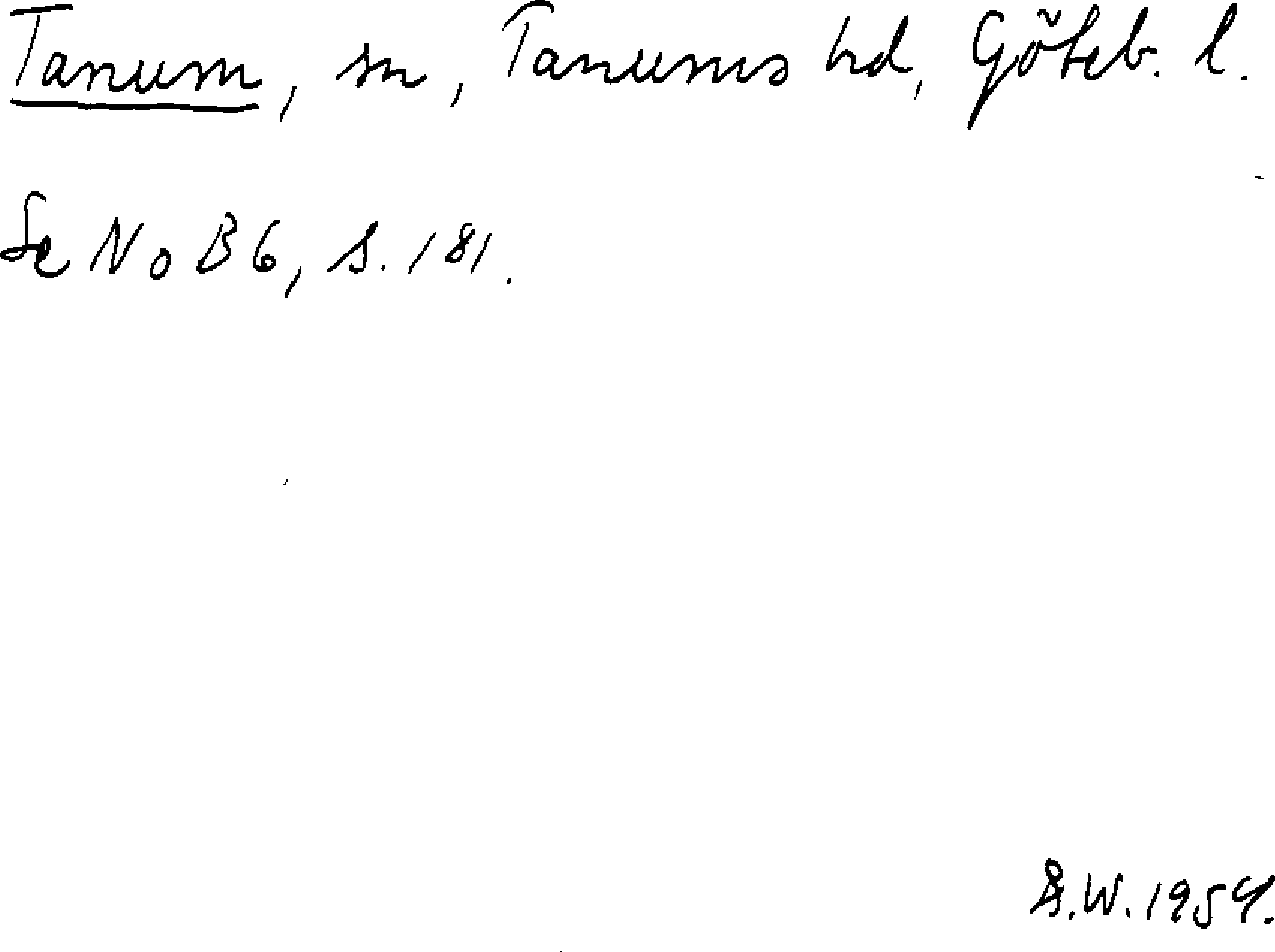 Tanum, sn, Tanums hd, Göteb. l.
Se NoB 6, s. 181.
S.W. 1954.